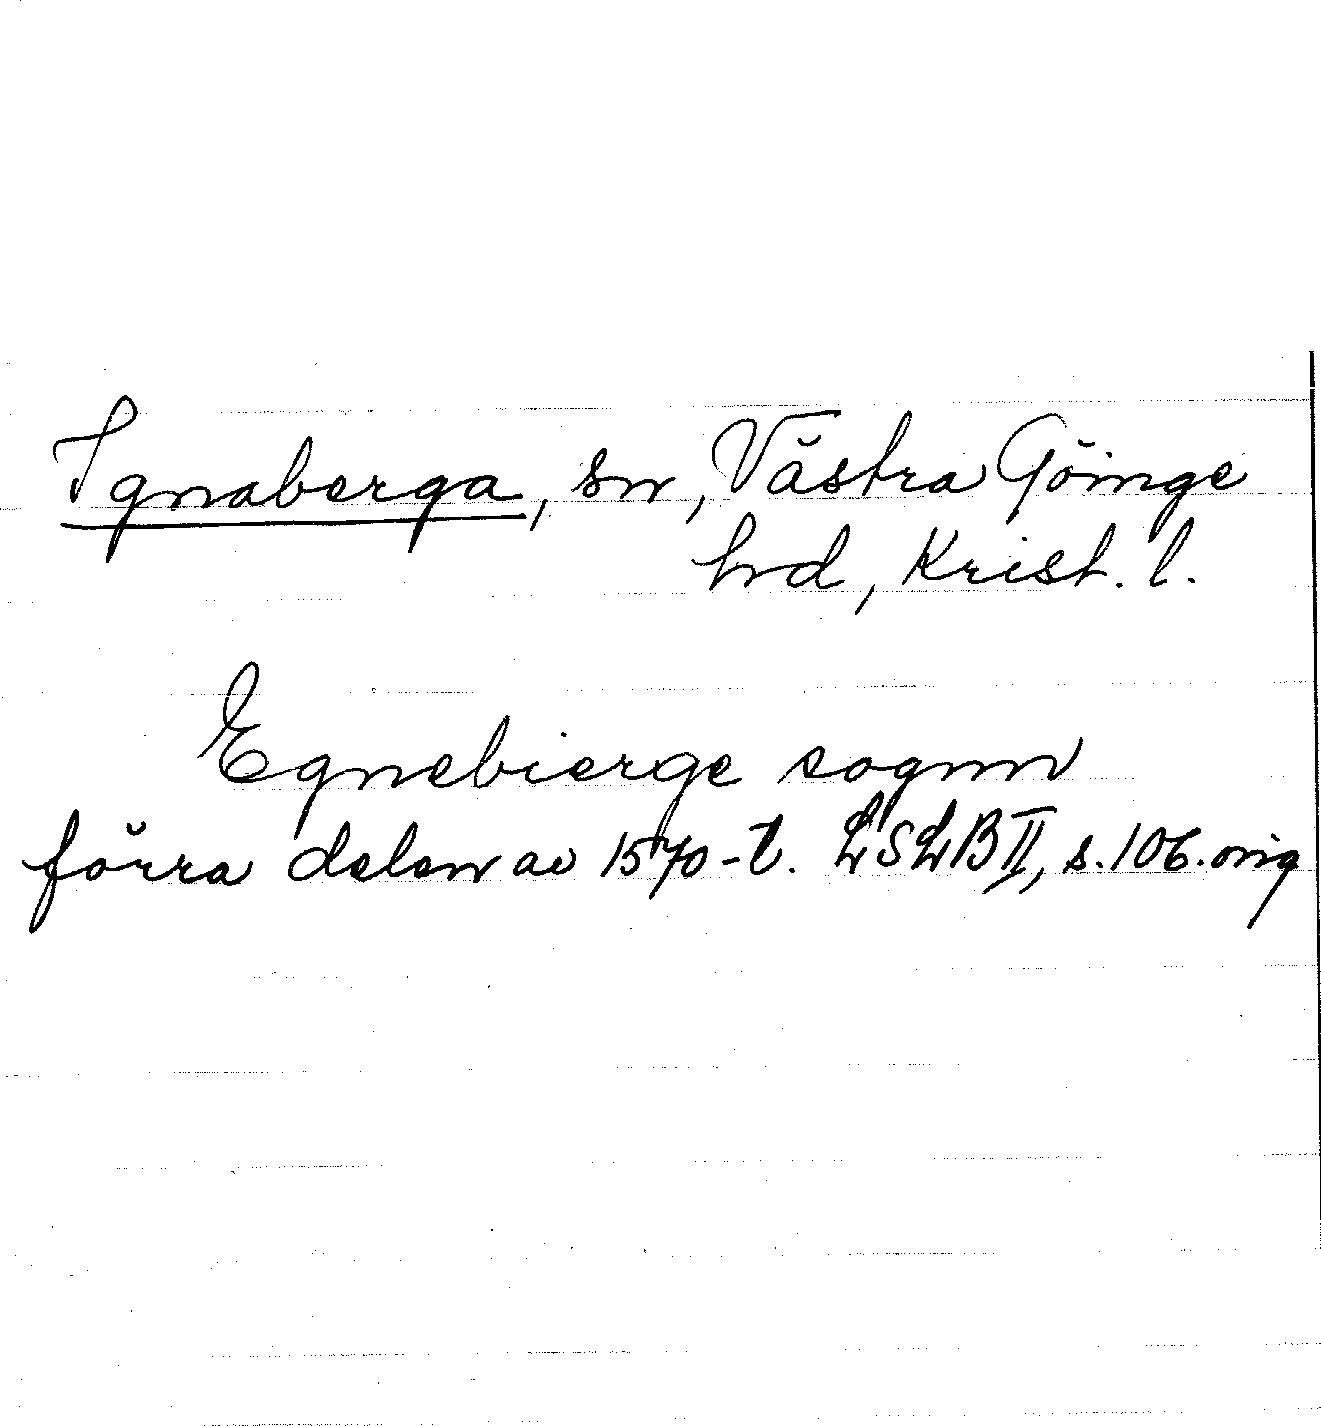 Ignaberga, sn, Västra Göinge
hrd, Krist. l.
Egnebierge sognn
förra delen av 1570-t. LSLB II, s. 106. orig